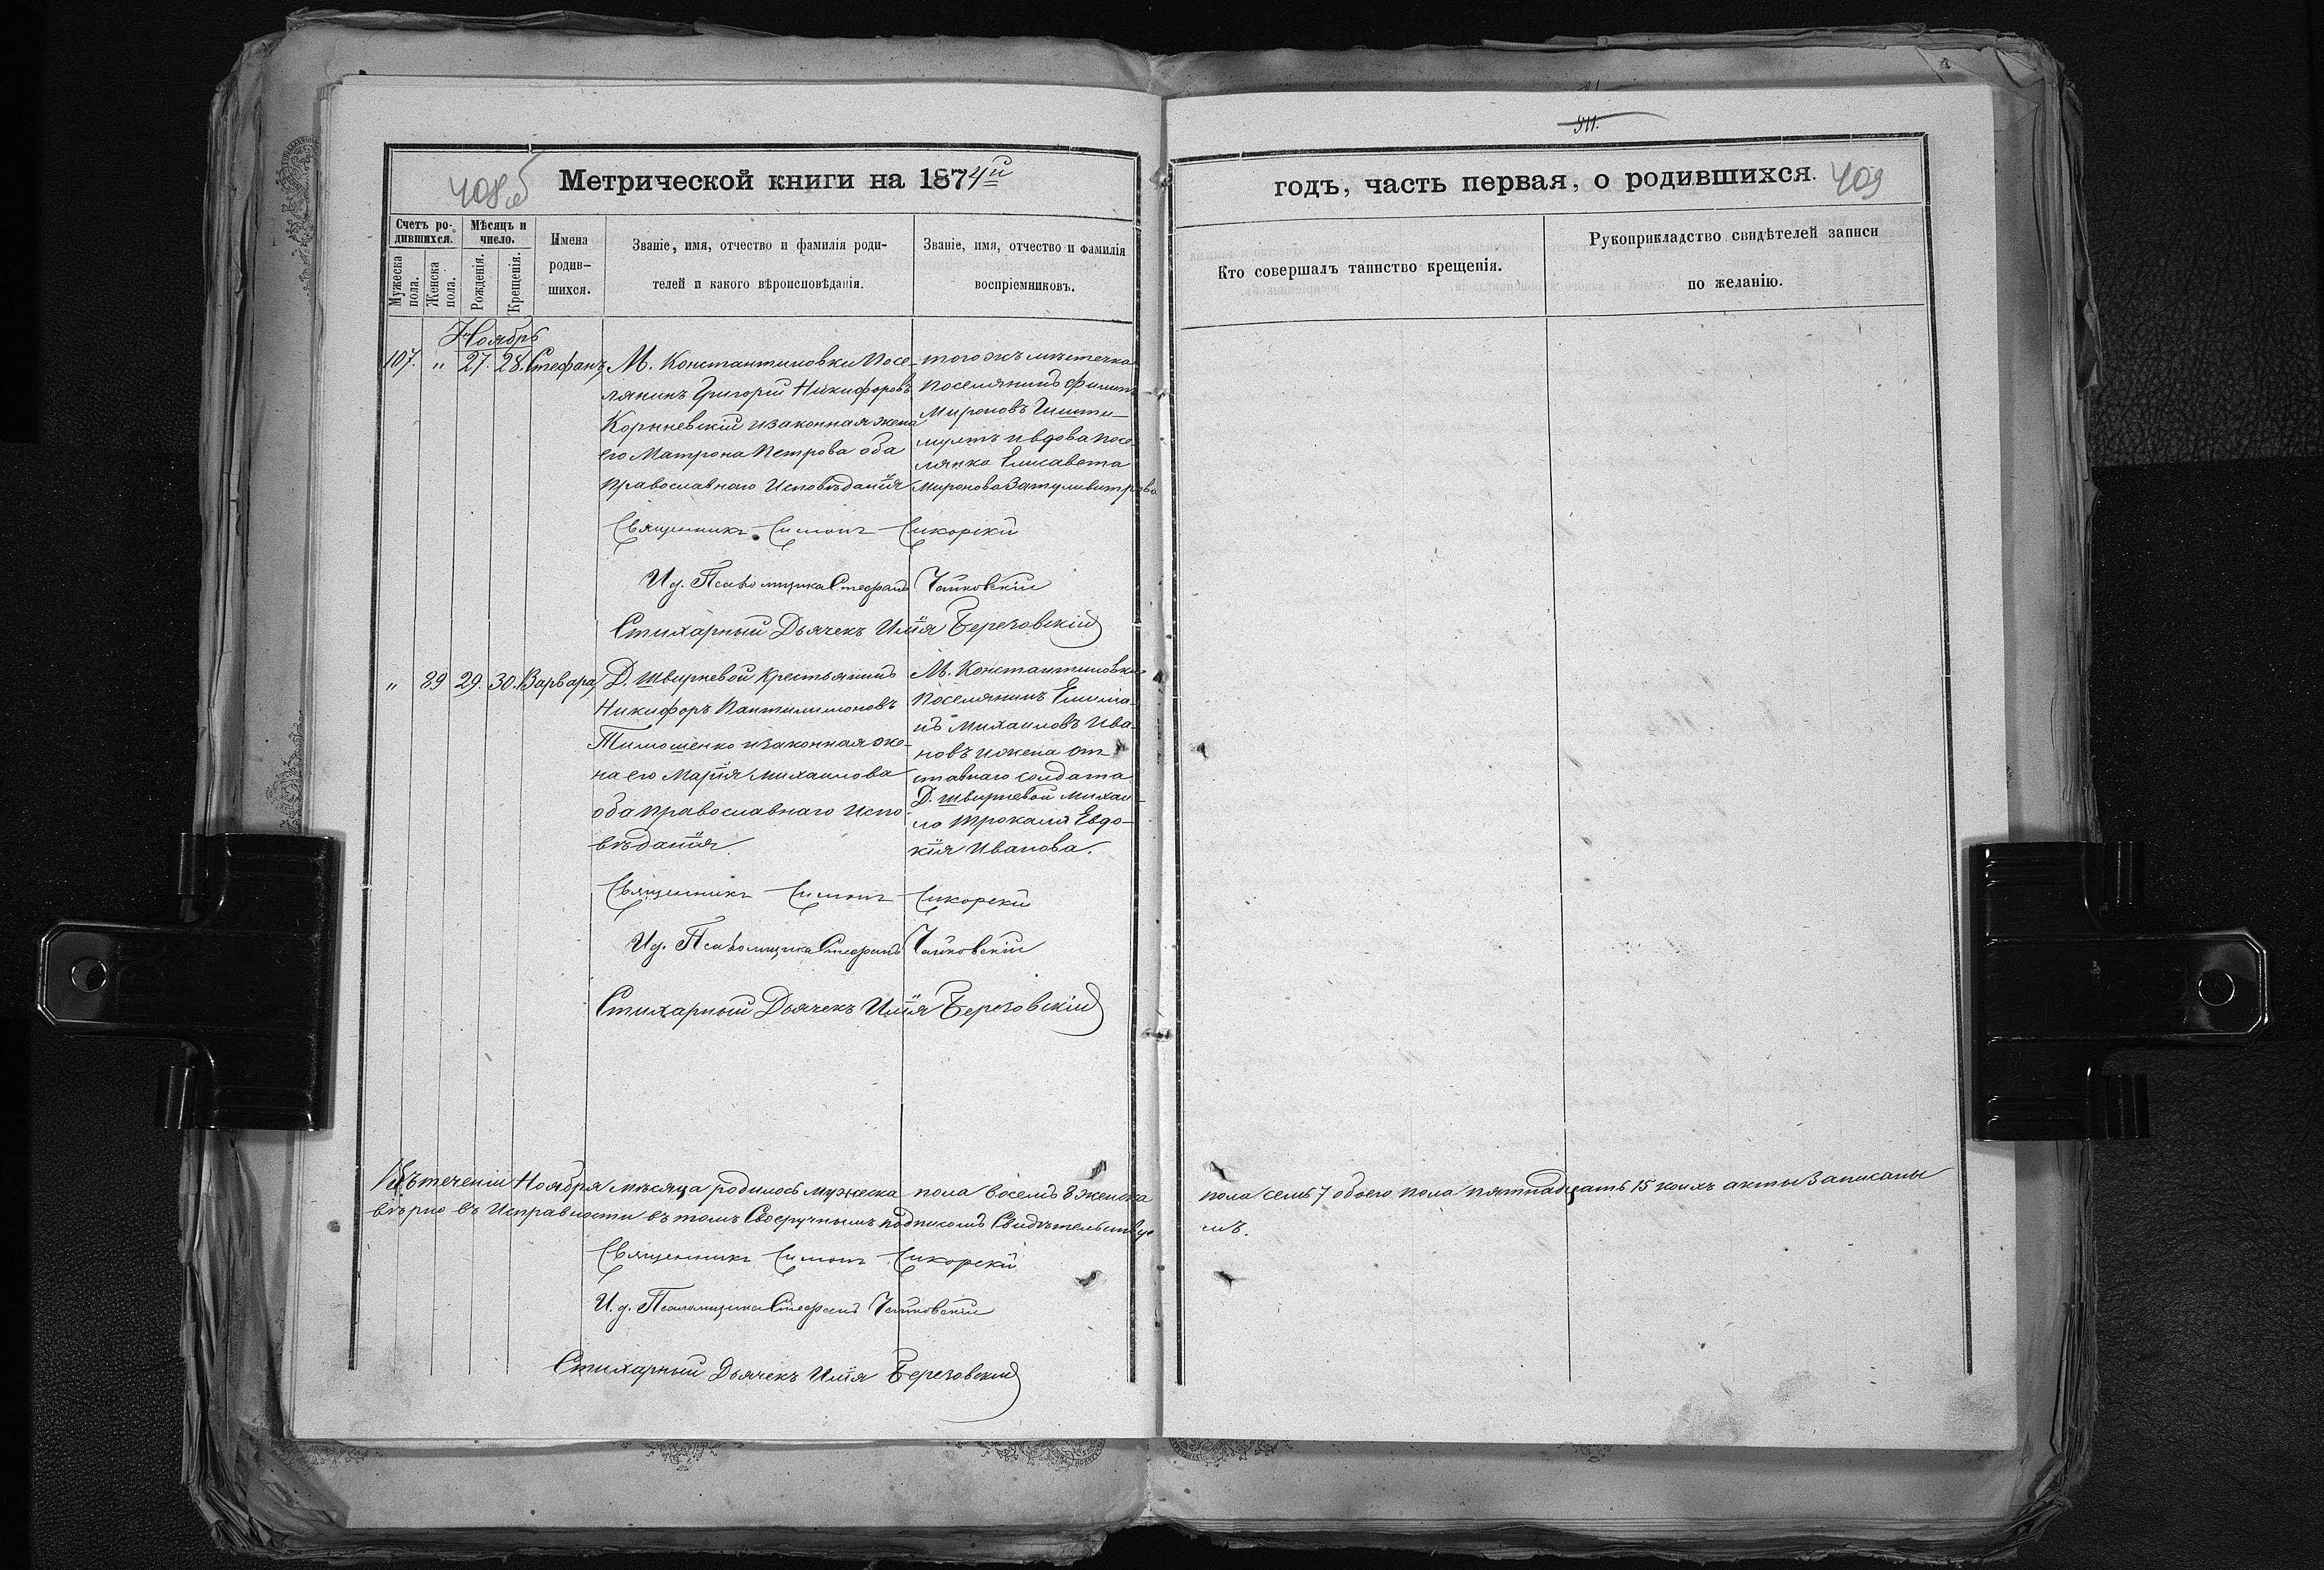 511.
408об
Метрической книги на 1874й
годъ, часть первая, о родившихся.
409
Счетъ ро-
дившихся.
Мужеска
пола.
Женска
пола.
Мѣсяцъ и
число.
Рожденія.
Крещенія.
Имена
родив-
шихся.
Званіе, имя, отчество и фамилія роди-
телей и какого вѣроисповѣданія.
Званіе, имя, отчество и фамилія
воспріемниковъ.
Кто совершалъ таинство крещенія.
Рукоприкладство свидѣтелей записи
по желанію.
Ноябрь
107. „ 27. 28. Стефанъ,
М. Константиновки Посе-
лянинъ Григорій Никифоровъ
Корыневскій и законная жена
его Матрона Петрова оба
Православнаго Исповѣданія
того жъ мѣстечка
Поселянинъ Филипъ
Мироновъ
и вдова посе-
лянка Елисавета
Миронова
Священникъ Симонъ Сикорскій
И.д. Псаломщика Стефанъ Чайковскій
Стихарный Дьячекъ Илія Березовскій
„ 89 29. 30. Варвара,
Д. Швирневой Крестьянинъ
Никифоръ Пантилимоновъ
Тимошенко и законная же-
на его Марія Михаилова
оба Православнаго Испо-
вѣданія
М. Константиновки
Поселянинъ Емилiа-
нъ Михаиловъ Ива-
новъ и жена От-
ставнаго Солдата
Д. Швирневой Михаи-
ло Трокаля Евдо-
кія Иванова.
Священникъ Симонъ Сикорскій
И.д. Псаломщика Стефанъ Чайковскій
Стихарный Дьячекъ Илія Березовскій
Въ теченіи Ноября мѣсяца родилось мужеска пола восемь 8 женска пола семь 7 обоего пола пятнадцать 15 коихъ акты записаны
вѣрно въ Исправности въ томъ Своеручнымъ подписомъ Свидѣтельствуе мъ.
Священникъ Симонъ Сикорскій
И.д. Псаломщика Стефанъ Чайковскій
Стихарный Дьячекъ Илія Березовскій